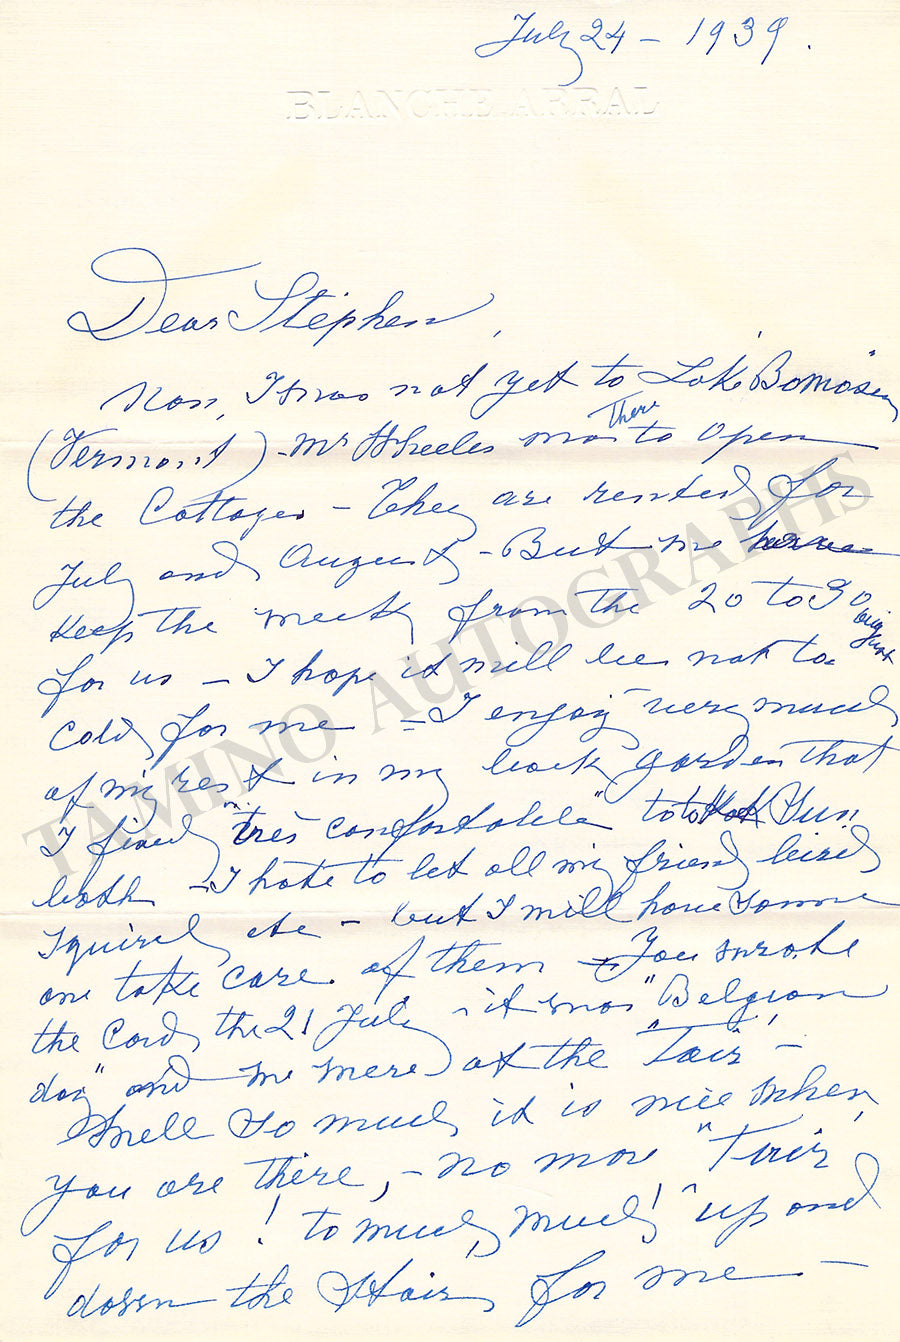 July 24 - 1939.
BLANCHE ARRAL
Dear Stephen,
Non, I was not yet to Lake "Bomosen"
(Vermont) - Mr Wheeler was There to open
the Cottages - They are rented for
July and August - But we
keep the week from the 20 to 30 august
for us - I hope it will be not to
cold for me - I enjoy very much
of my rest in my back garden that
I fixed "très confortable" Sun
bath - I hate to let all my friend bird
squirel etc - but I will have some
one take care of them - You wrote
the card the 21 July - it was "Belgian
day" and we were at the "Fair" -
Well so much it is nice when
you are there, - no more "Fair
for us! to much, much!" up and
down the Stair for me -
TAMINO AUTOGRAPHS